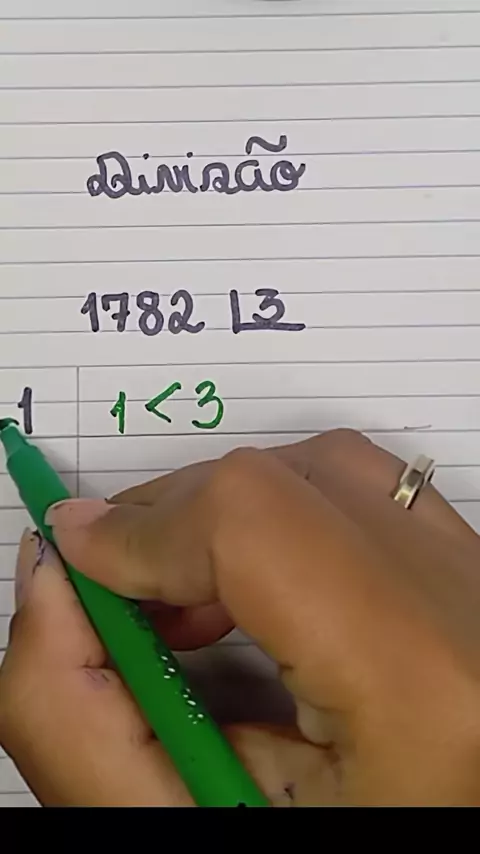 Divisão
1782 3
1 1 < 3